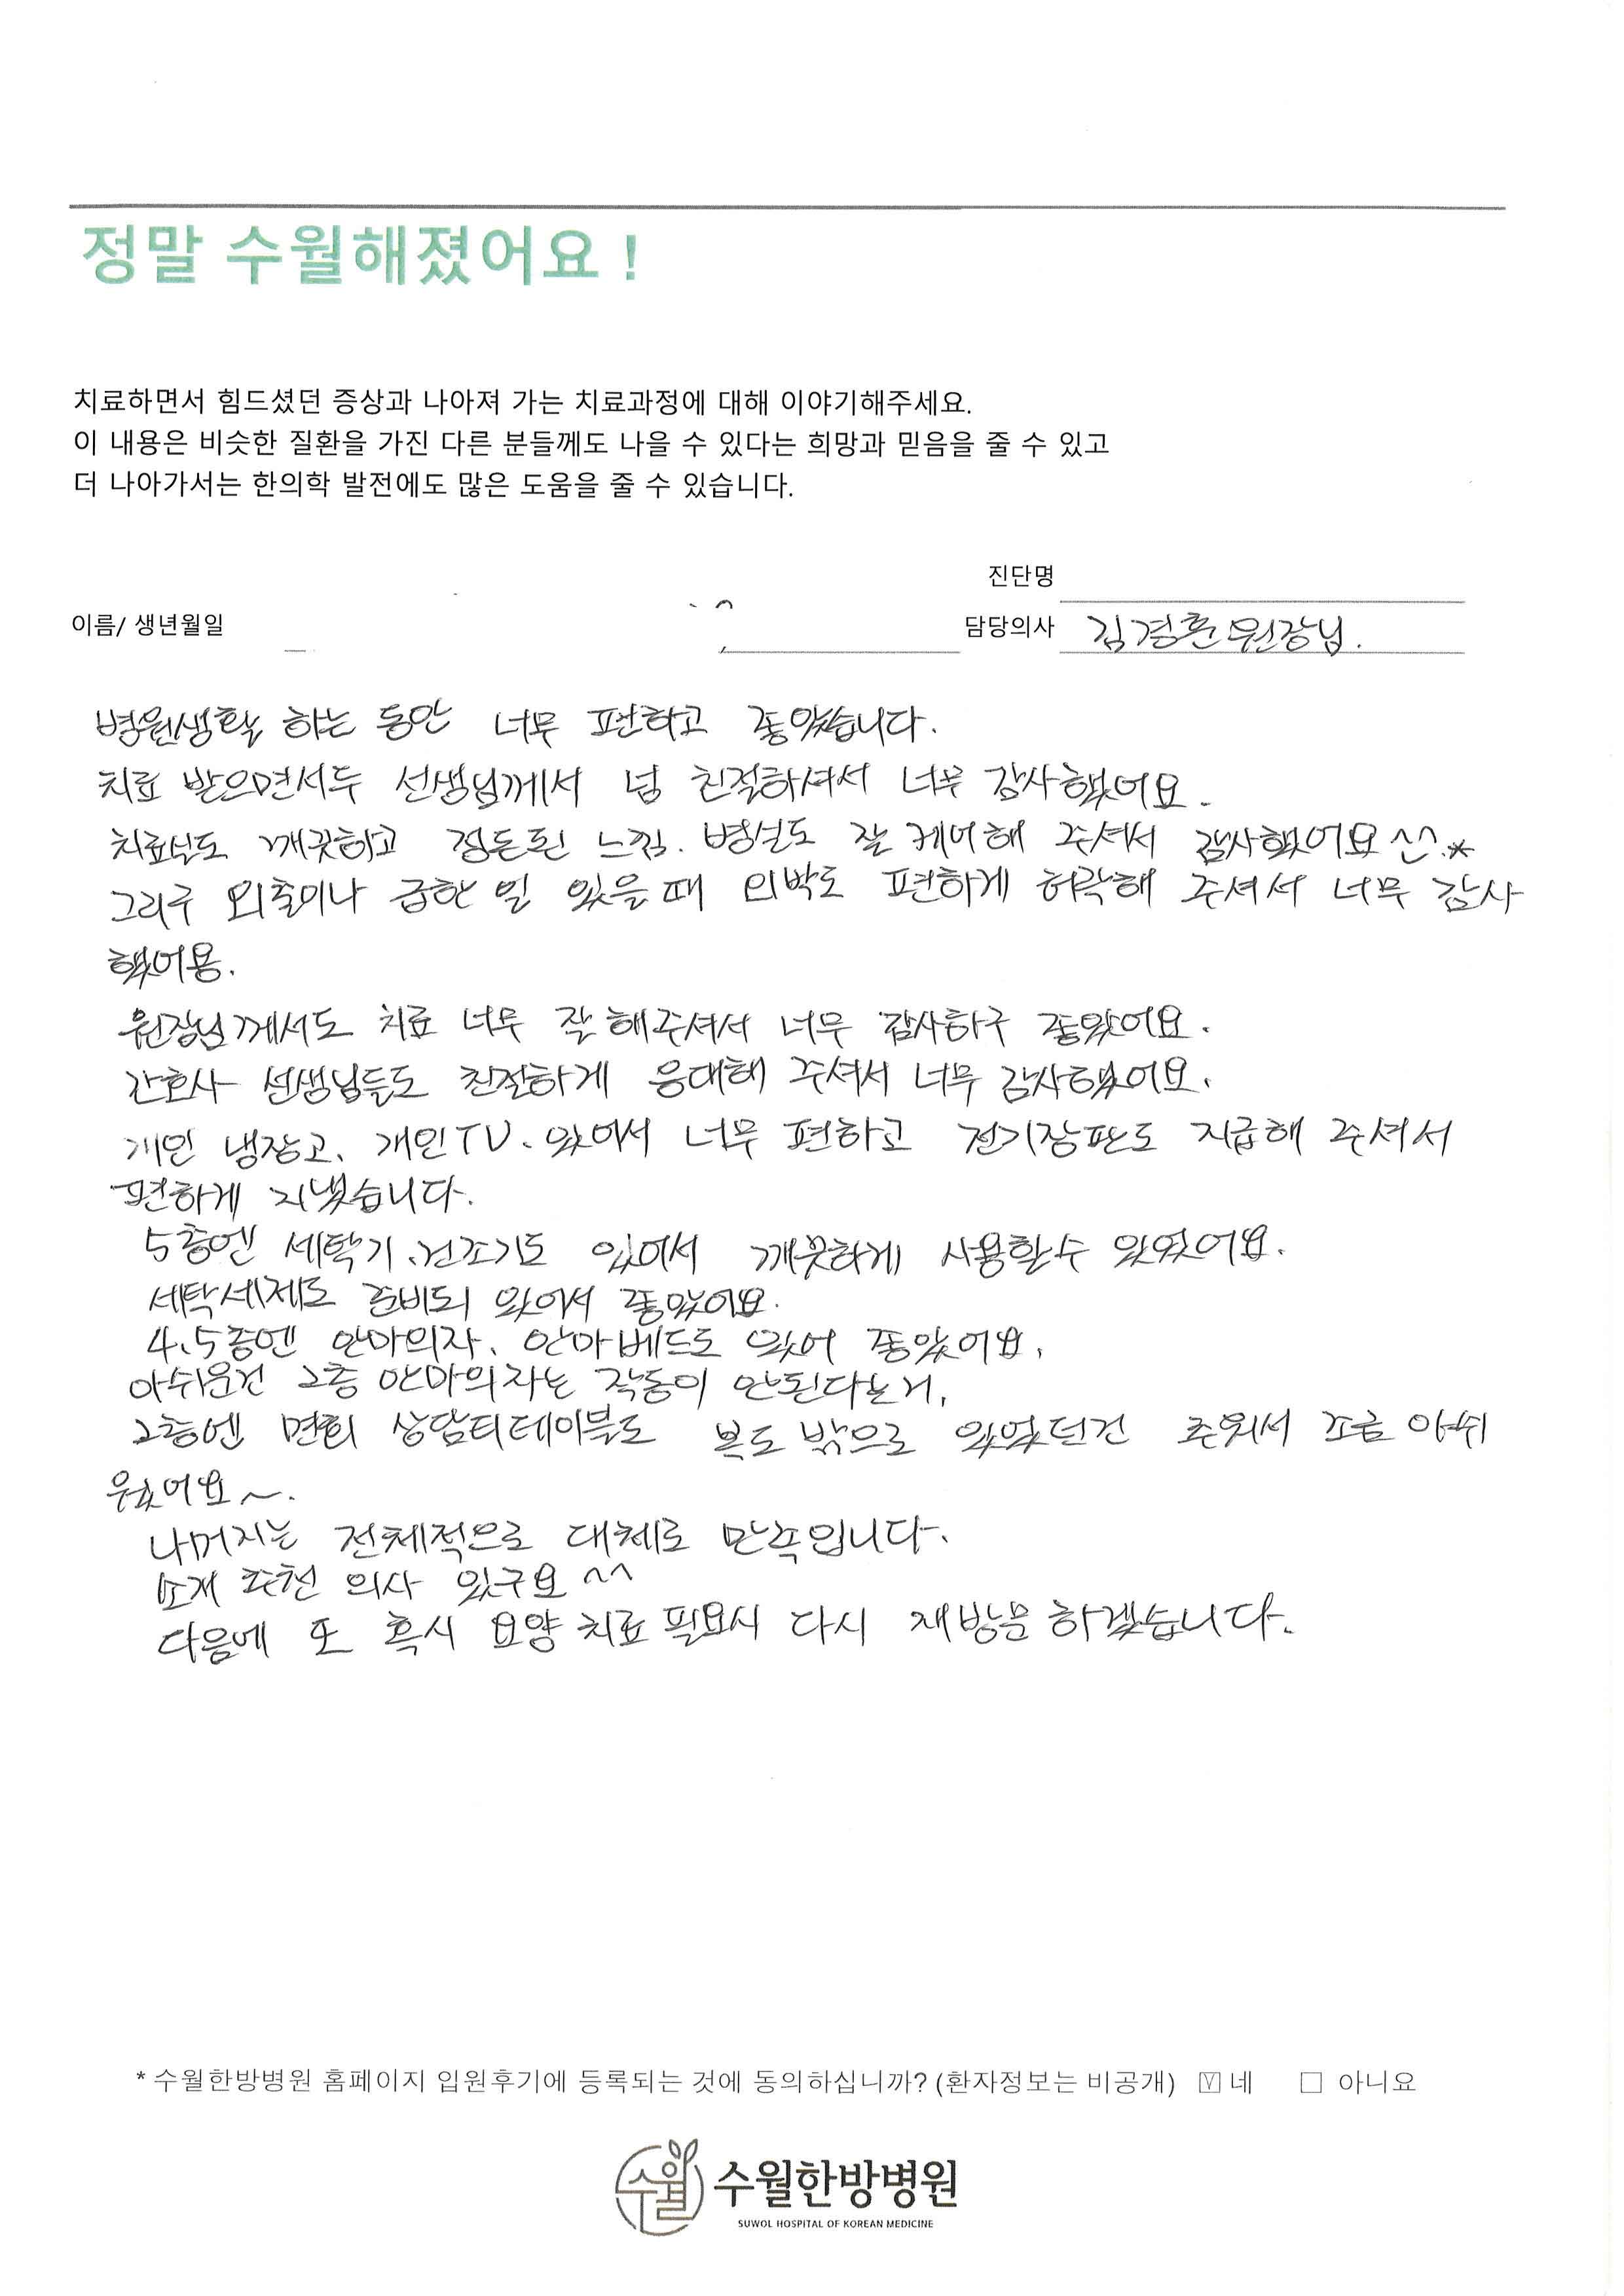 정말 수월해졌어요 !
치료하면서 힘드셨던 증상과 나아져 가는 치료과정에 대해 이야기해주세요.
이 내용은 비슷한 질환을 가진 다른 분들께도 나을 수 있다는 희망과 믿음을 줄 수 있고
더 나아가서는 한의학 발전에도 많은 도움을 줄 수 있습니다.
진단명
이름/ 생년월일
담당의사 김경훈 원장님.
병원생활 하는 동안 너무 편하고 좋았습니다.
치료 받으면서두 선생님께서 넘 친절하셔서 너무 감사했어요.
치료실도 깨끗하고 정돈된 느낌. 병실도 잘 케어해 주셔서 감사했어요 ^^.*
그리구 외출이나 급한 일 있을때 외박도 편하게 허락해 주셔서 너무 감사
했어용.
원장님께서도 치료 너무 잘 해주셔서 너무 감사하구 좋았어요.
간호사 선생님들도 친절하게 응대해 주셔서 너무 감사했어요.
개인 냉장고, 개인TV. 있어서 너무 편하고 전기장판도 지급해 주셔서
편하게 지냈습니다.
5층엔 세탁기.건조기도 있어서 깨끗하게 사용할수 있었어요.
세탁세제도 준비되 있어서 좋았어요.
4.5층엔 안마의자, 안마베드도 있어 좋았어요.
아쉬운건 2층 안마의자는 작동이 안된다는거,
2층엔 면회 상담티테이블도 복도 밖으로 있었던건 추워서 조금 아쉬
웠어요~.
나머지는 전체적으로 대체로 만족입니다.
소개 추천 의사 있구요 ^^
다음에 또 혹시 요양 치료 필요시 다시 재방문 하겠습니다.
* 수월한방병원 홈페이지 입원후기에 등록되는 것에 동의하십니까? (환자정보는 비공개) ☑ 네 □ 아니요
수월 수월한방병원
SUWOL HOSPITAL OF KOREAN MEDICINE